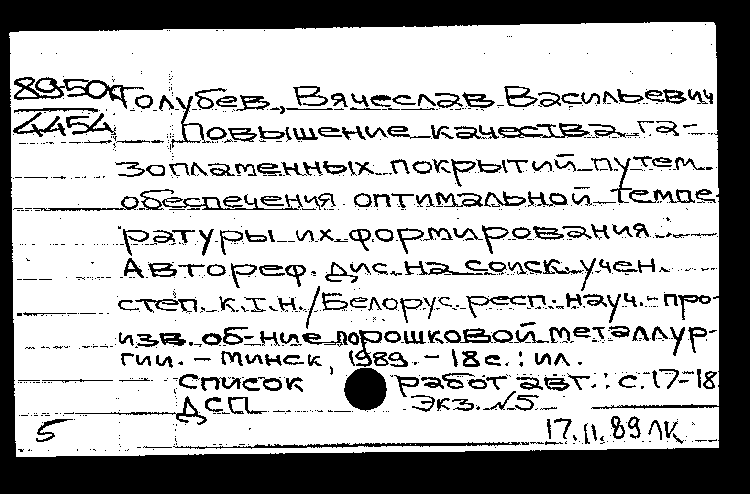 8950А Голубев, Вячеслав Васильевич
4454 Повышение качества га-
зопламенных покрытий путем
обеспечения оптимальной темпе
ратуры их формирования :
Автореф. дис. на соиск. учен.
степ. к.т.н. / Белорус. респ. науч.-про-
изв. об-ние порошковой металлур-
гии. - Минск, 1989. - 18 с. : ил.
Список работ авт.: с. 17-18
ДСП Экз. №5
5 17.11.89 ЛК